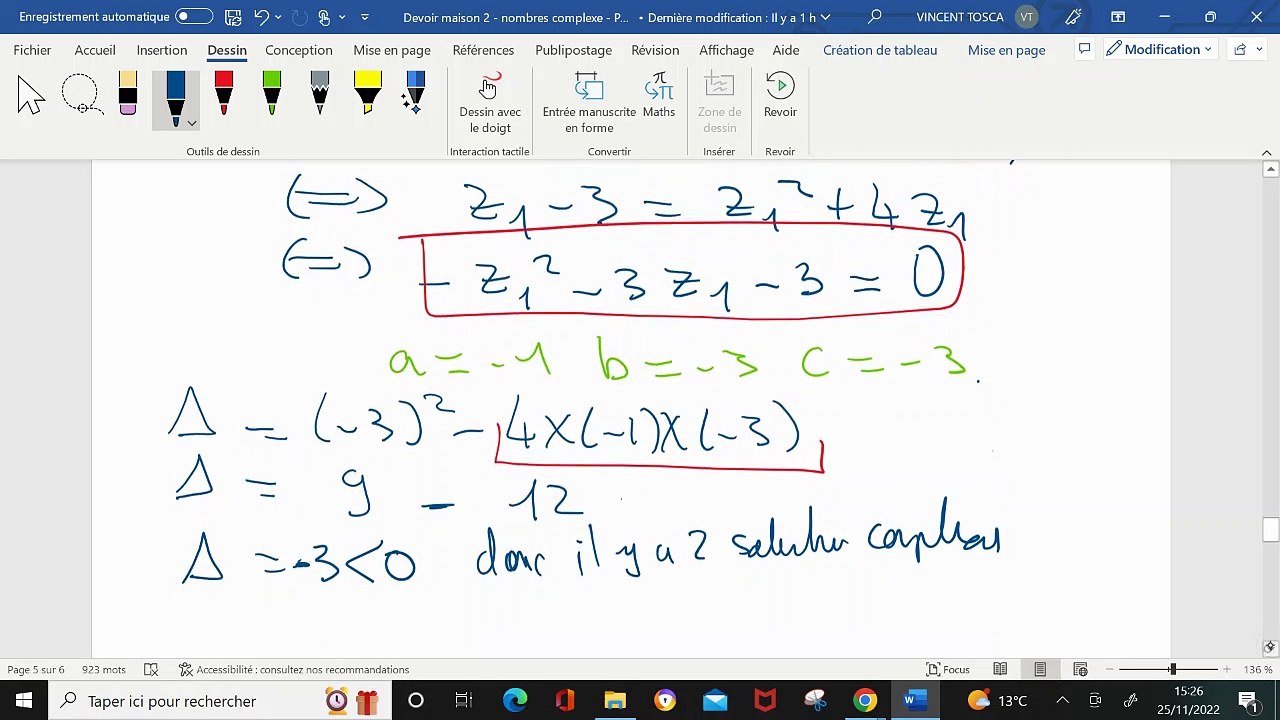 Enregistrement automatique Devoir maison 2 - nombres complexe - P... • Dernière modification : Il y a 1 h VINCENT TOSCA VT
Fichier Accueil Insertion Dessin Conception Mise en page Références Publipostage Révision Affichage Aide Création de tableau Mise en page Modification
Dessin avec le doigt Entrée manuscrite en forme Maths Zone de dessin Revoir
Outils de dessin Interaction tactile Convertir Insérer Revoir
(=>) z₁ - 3 = z₁² + 4 z₁
(=>) - z₁² - 3 z₁ - 3 = 0
a = -1 b = -3 c = -3.
Δ = (-3)² - 4 X (-1) X (-3)
Δ = 9 - 12
Δ = -3 < 0 donc il y a 2
Page 5 sur 6 923 mots Accessibilité : consultez nos recommandations Focus 136 %
Taper ici pour rechercher 13°C 15:26
25/11/2022 1